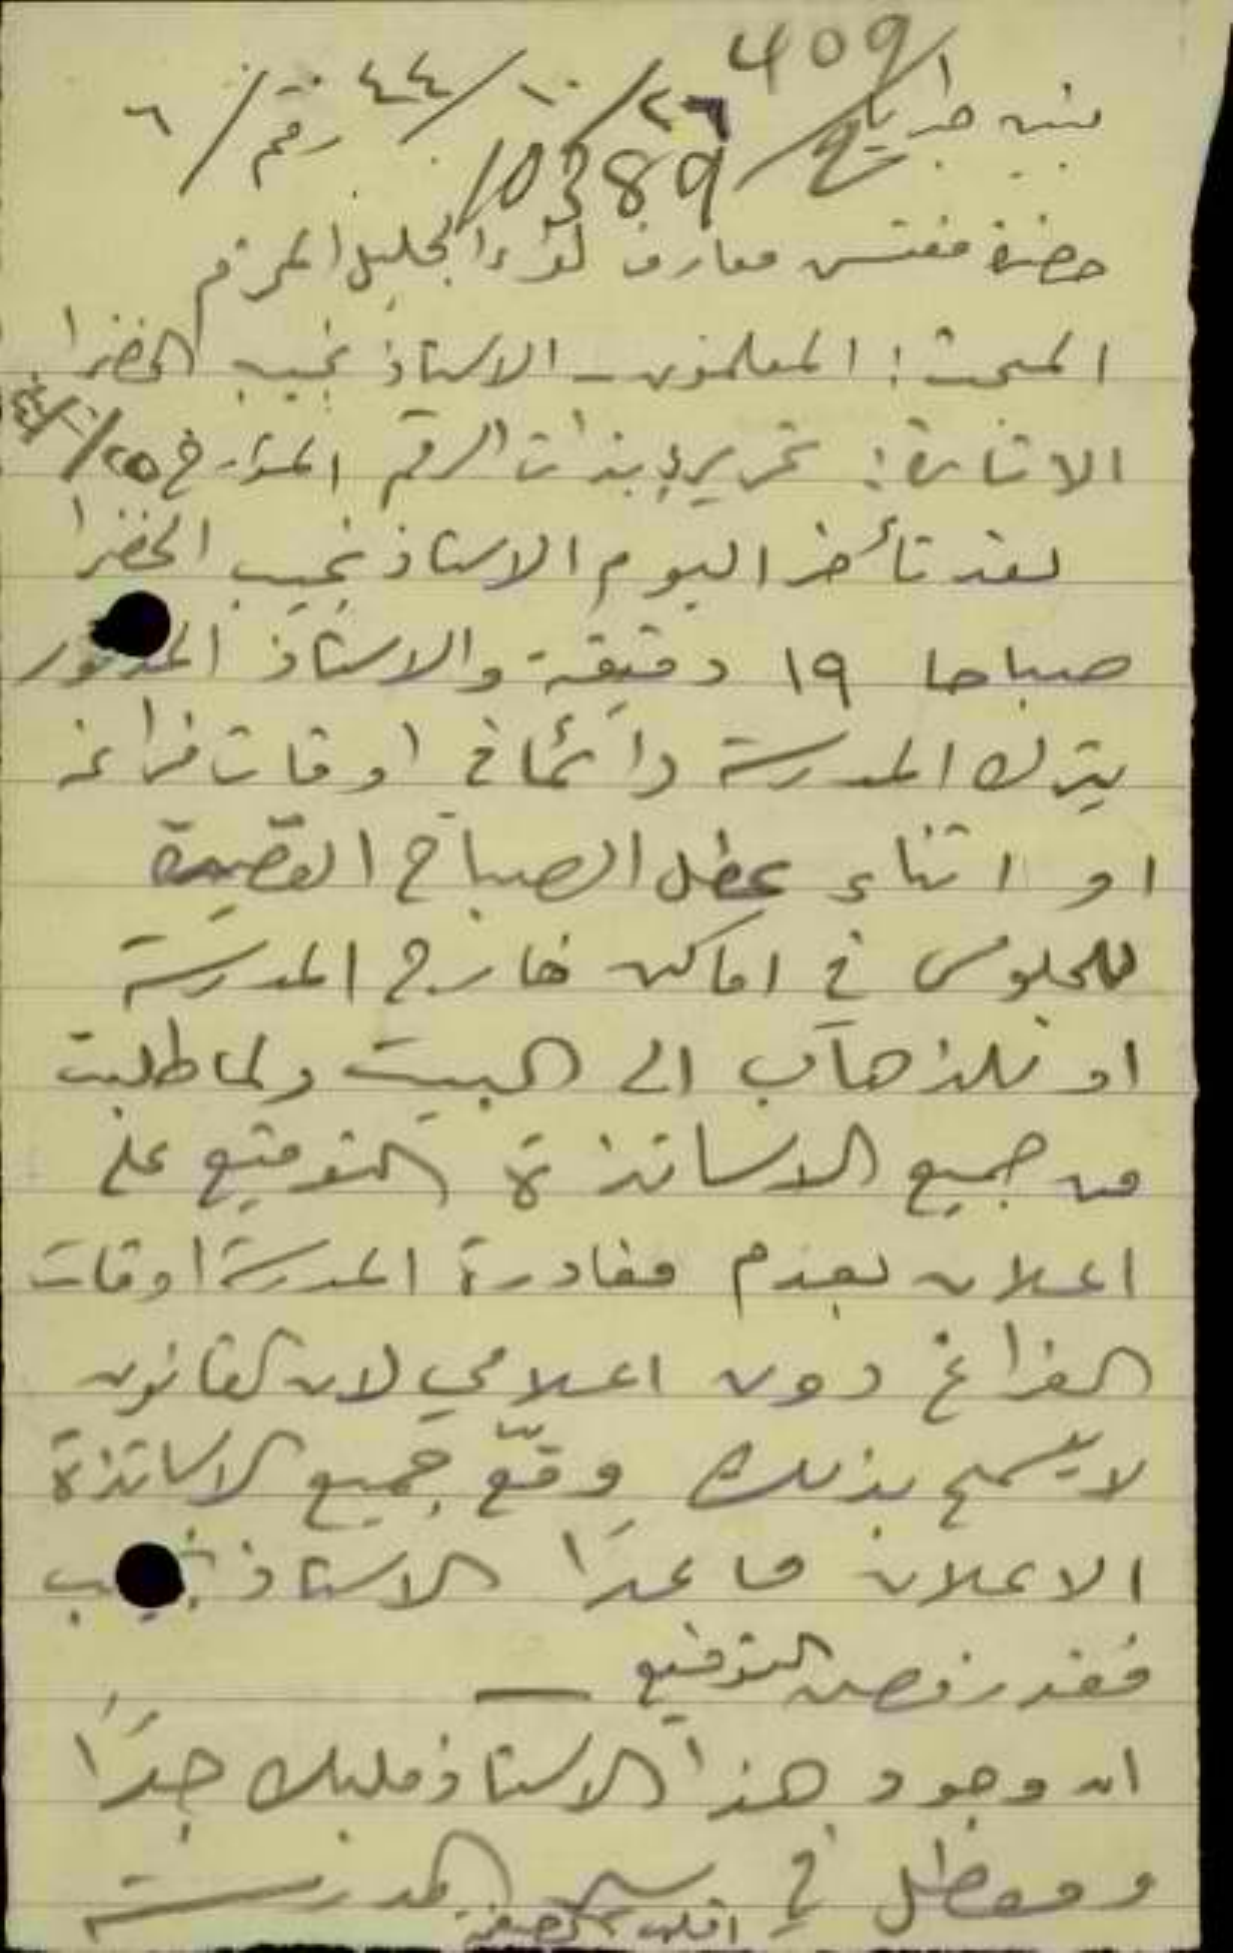 409/
بنين طبريا ٢٦/١٠/٤٤ رقم/٦
10389
حضرة مفتش معارف لواء الجليل المحترم
المبحث: المعلمون - الاستاذ نجيب الخضرا
الاشارة: تحريري بذات الرقم المؤرخ ٢٥/١٠/٤٤
لقد تأخر اليوم الاستاذ نجيب الخضرا
صباحا ١٩ دقيقة والاستاذ المذكور
يترك المدرسة دائما في اوقات فراغه
او اثناء عطل الصباح القصيرة
للجلوس في اماكن خارج المدرسة
او للذهاب الى البيت ولما طلبت
من جميع الاساتذة التوقيع على
اعلان بعدم مغادرة المدرسة اوقات
الفراغ دون اعلامي لان القانون
لا يسمح بذلك وقّع جميع الاساتذة
الاعلان ما عدا الاستاذ نجيب
فقد رفض التوقيع —
ان وجود هذا الاستاذ ملبك جدًا
ومعطل في سير المدرسة
اقلب الصفحة